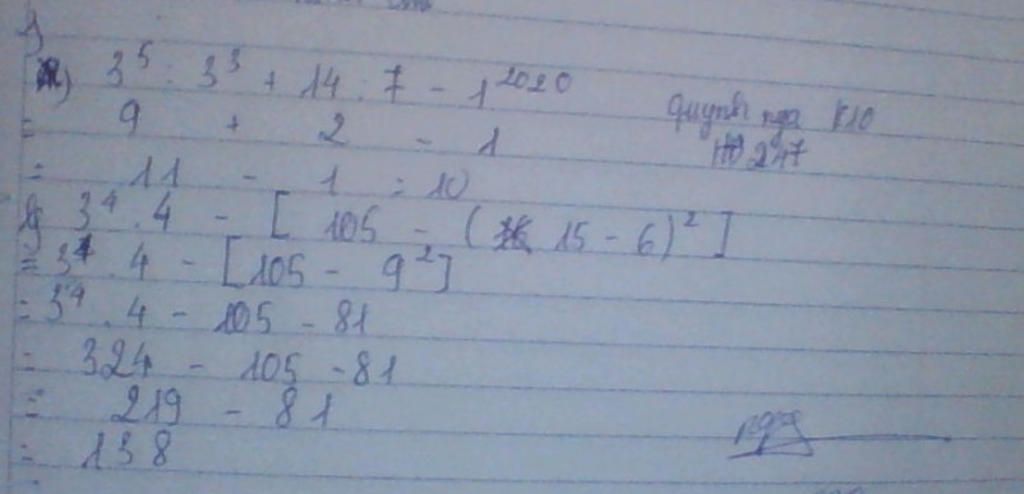 a) 3⁵ : 3³ + 14 : 7 - 1²⁰²⁰
= 9 + 2 - 1
= 11 - 1 = 10
3⁴ . 4 - [ 105 - ( 15 - 6)² ]
= 3⁴ . 4 - [105 - 9²]
= 3⁴ . 4 - 105 - 81
= 324 - 105 - 81
= 219 - 81
= 138
nga K10
247